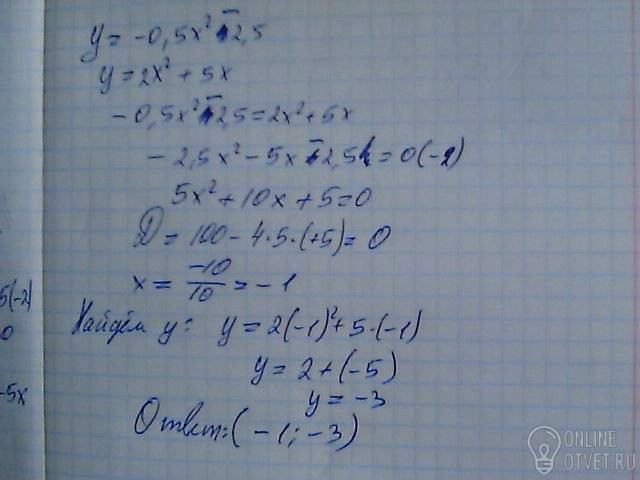 y = -0,5x² - 2,5
y = 2x² + 5x
-0,5x² - 2,5 = 2x² + 5x
-2,5x² - 5x - 2,5 = 0 (-2)
5x² + 10x + 5 = 0
D = 100 - 4·5·(+5) = 0
x = -10/10 = -1
Найдём y: y = 2(-1)² + 5·(-1)
y = 2 + (-5)
y = -3
Ответ: (-1; -3)
5(-2)
0
-5x
ONLINE
OTVET.RU